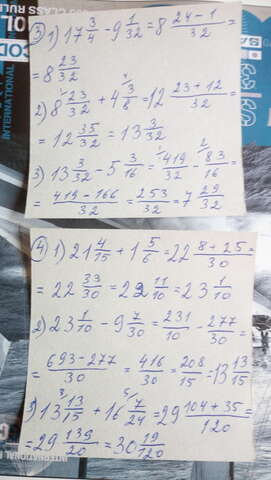 CLASS RULED
INTERNATIONAL
COD
③ 1) 17 3/4 - 9 1/32 = 8 24 - 1/32 =
= 8 23/32
2) 8 23/32 + 4 3/8 = 12 23 + 12/32 =
= 12 35/32 = 13 3/32
3) 13 3/32 - 5 3/16 = 419/32 - 83/16 =
= 419 - 166/32 = 253/32 = 7 29/32
④ 1) 21 4/15 + 1 5/6 = 22 8 + 25/30 =
= 22 33/30 = 22 11/10 = 23 1/10
2) 23 1/10 - 9 7/30 = 231/10 - 277/30 =
= 693 - 277/30 = 416/30 = 208/15 = 13 13/15
3) 13 13/15 + 16 7/24 = 29 104 + 35/120 =
= 29 139/120 = 30 19/120